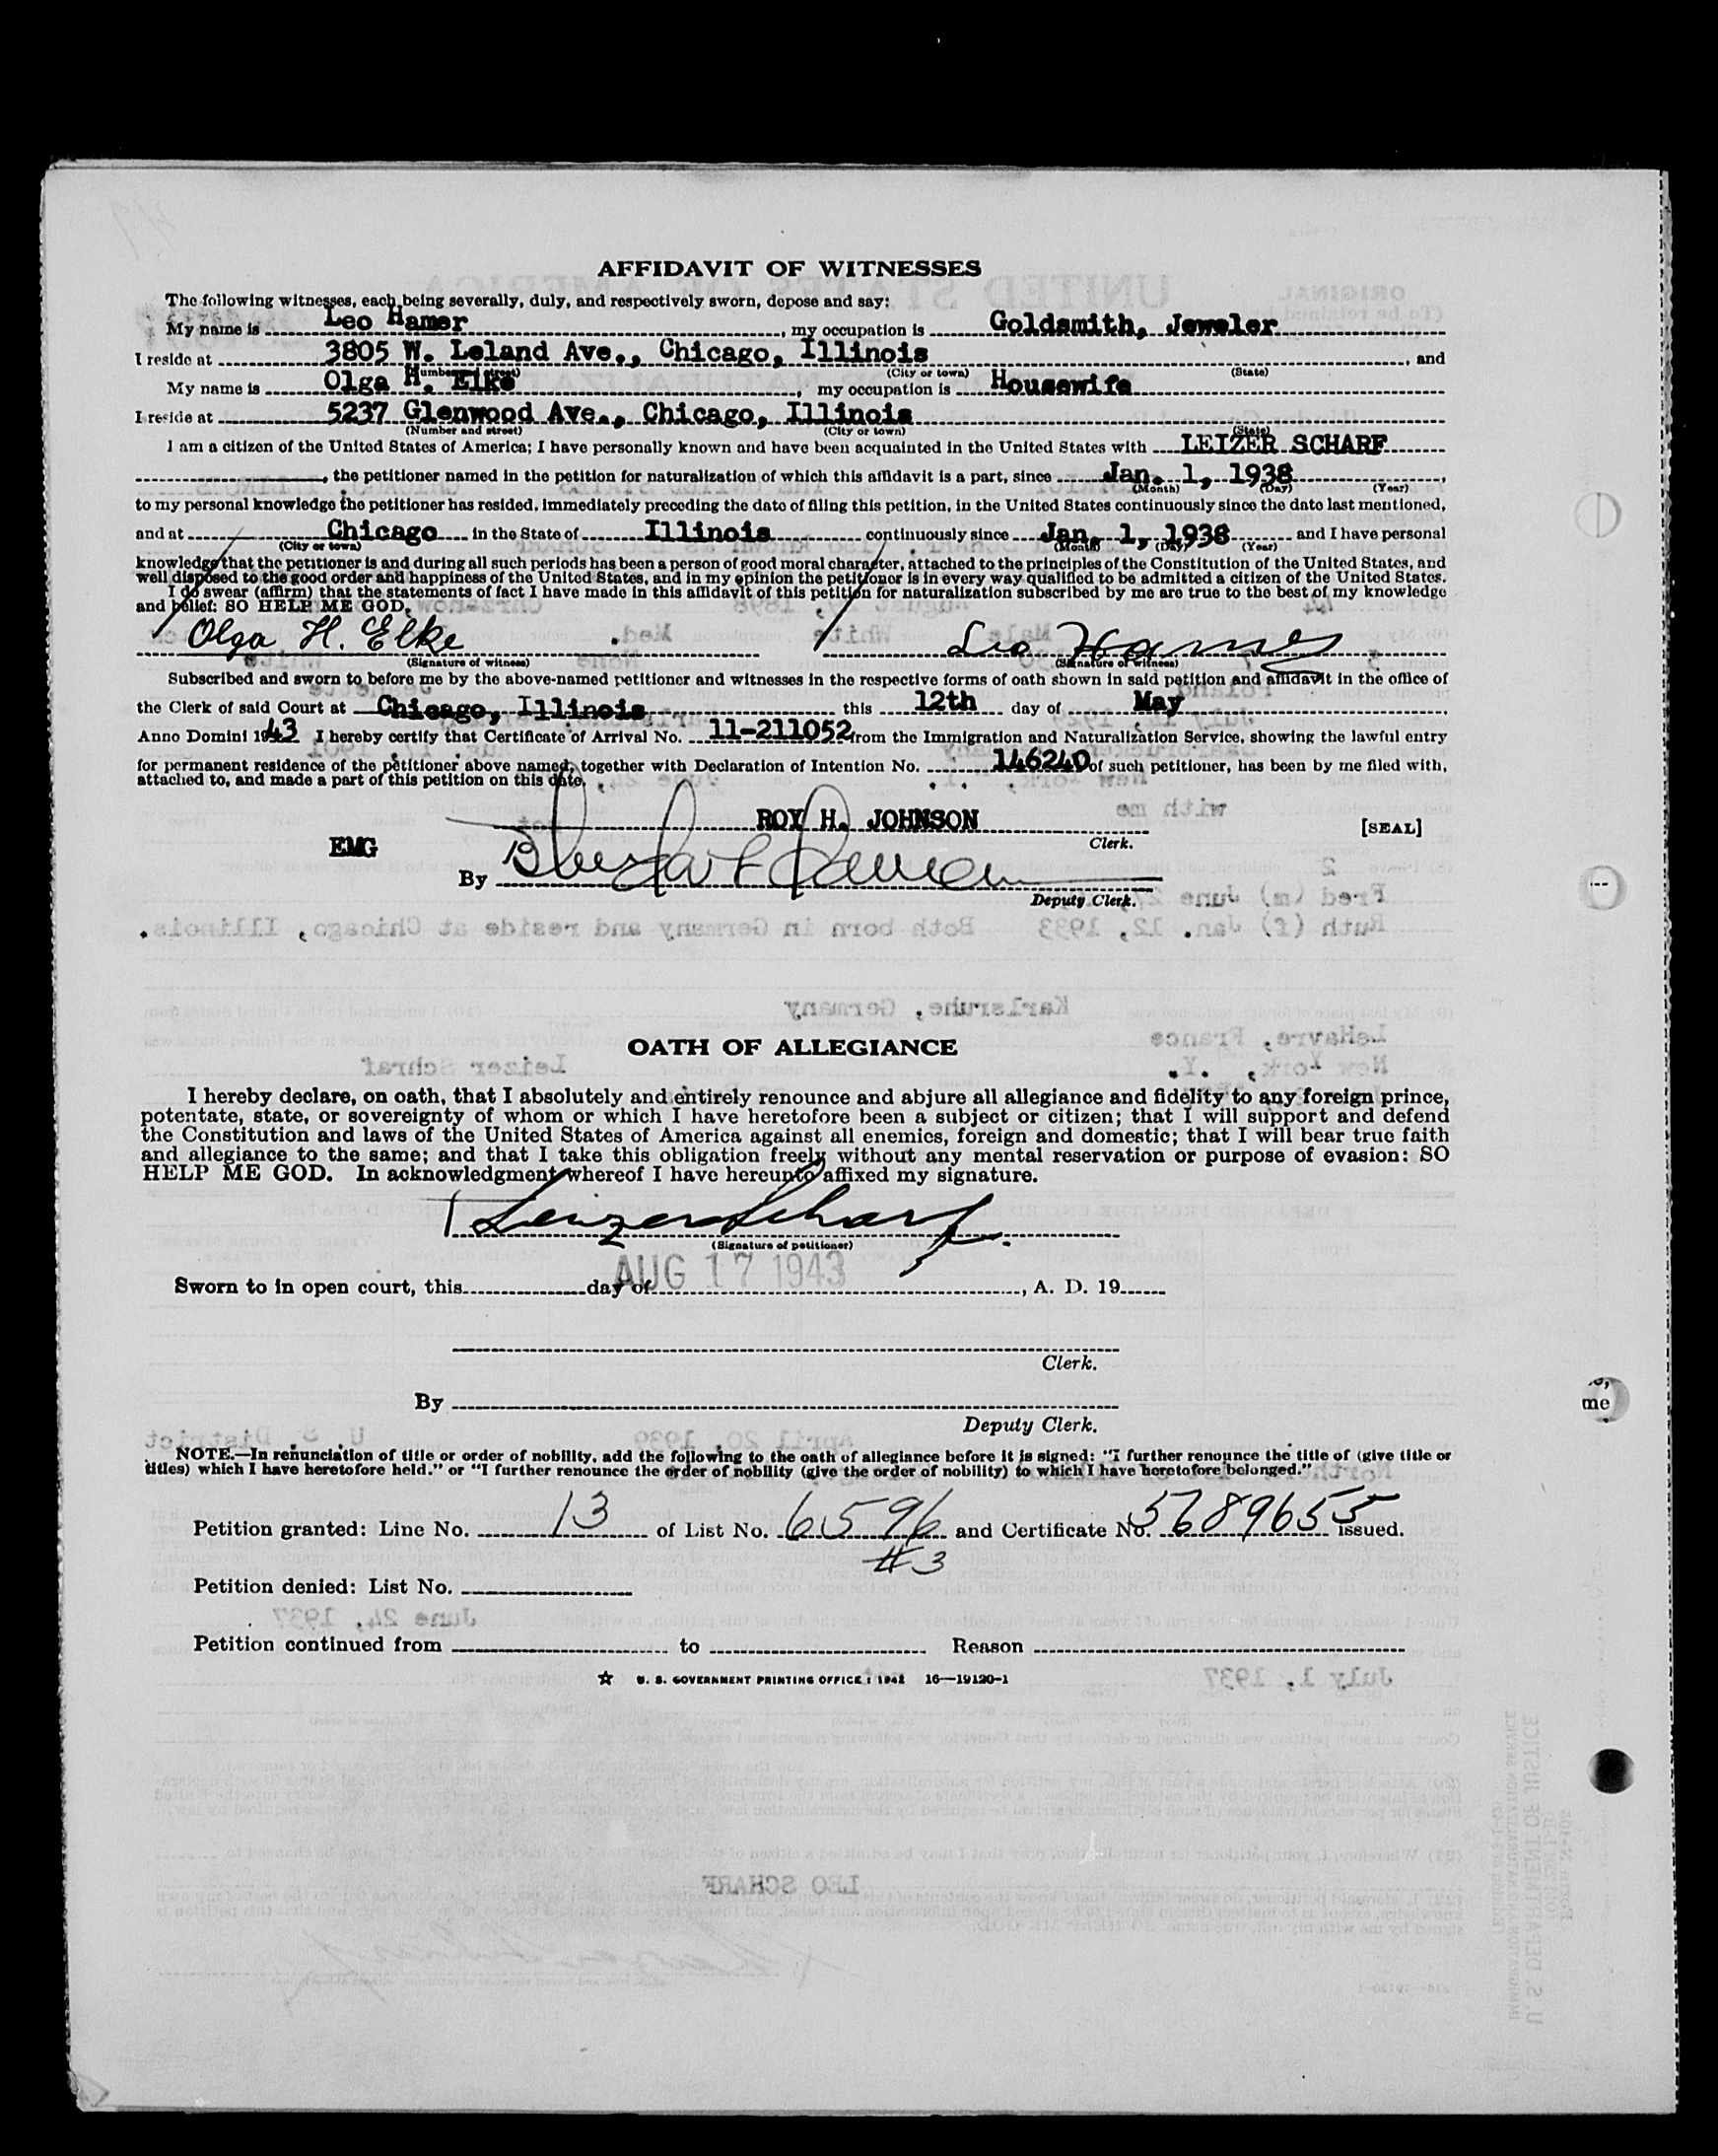 AFFIDAVIT OF WITNESSES
The following witnesses, each being severally, duly, and respectively sworn, depose and say:
My name is Leo Hamer, my occupation is Goldsmith, Jeweler
I reside at 3805 W. Leland Ave., Chicago, Illinois, and
(Number and street) (City or town) (State)
My name is Olga H. Elke, my occupation is Housewife
I reside at 5237 Glenwood Ave., Chicago, Illinois
(Number and street) (City or town) (State)
I am a citizen of the United States of America; I have personally known and have been acquainted in the United States with LEIZER SCHARF
, the petitioner named in the petition for naturalization of which this affidavit is a part, since Jan. 1, 1938,
(Month) (Day) (Year)
to my personal knowledge the petitioner has resided, immediately preceding the date of filing this petition, in the United States continuously since the date last mentioned,
and at Chicago in the State of Illinois continuously since Jan. 1, 1938 and I have personal
(City or town) (Month) (Day) (Year)
knowledge that the petitioner is and during all such periods has been a person of good moral character, attached to the principles of the Constitution of the United States, and
well disposed to the good order and happiness of the United States, and in my opinion the petitioner is in every way qualified to be admitted a citizen of the United States.
I do swear (affirm) that the statements of fact I have made in this affidavit of this petition for naturalization subscribed by me are true to the best of my knowledge
and belief: SO HELP ME GOD.
Olga H. Elke Leo Hamer
(Signature of witness) (Signature of witness)
Subscribed and sworn to before me by the above-named petitioner and witnesses in the respective forms of oath shown in said petition and affidavit in the office of
the Clerk of said Court at Chicago, Illinois this 12th day of May,
Anno Domini 1943 I hereby certify that Certificate of Arrival No. 11-211052 from the Immigration and Naturalization Service, showing the lawful entry
for permanent residence of the petitioner above named, together with Declaration of Intention No. 146240 of such petitioner, has been by me filed with,
attached to, and made a part of this petition on this date.
ROY H. JOHNSON
Clerk.
[SEAL]
EMG
By
Deputy Clerk.
OATH OF ALLEGIANCE
I hereby declare, on oath, that I absolutely and entirely renounce and abjure all allegiance and fidelity to any foreign prince,
potentate, state, or sovereignty of whom or which I have heretofore been a subject or citizen; that I will support and defend
the Constitution and laws of the United States of America against all enemies, foreign and domestic; that I will bear true faith
and allegiance to the same; and that I take this obligation freely without any mental reservation or purpose of evasion: SO
HELP ME GOD. In acknowledgment whereof I have hereunto affixed my signature.
Leizer Scharf
(Signature of petitioner)
AUG 17 1943
Sworn to in open court, this day of , A. D. 19
Clerk.
By
Deputy Clerk.
NOTE.—In renunciation of title or order of nobility, add the following to the oath of allegiance before it is signed: "I further renounce the title of (give title or
titles) which I have heretofore held." or "I further renounce the order of nobility (give the order of nobility) to which I have heretofore belonged."
Petition granted: Line No. 13 of List No. 6596 and Certificate No. 5689655 issued.
#3
Petition denied: List No.
Petition continued from to Reason
☆ U. S. GOVERNMENT PRINTING OFFICE: 1942 16—19120-1
me